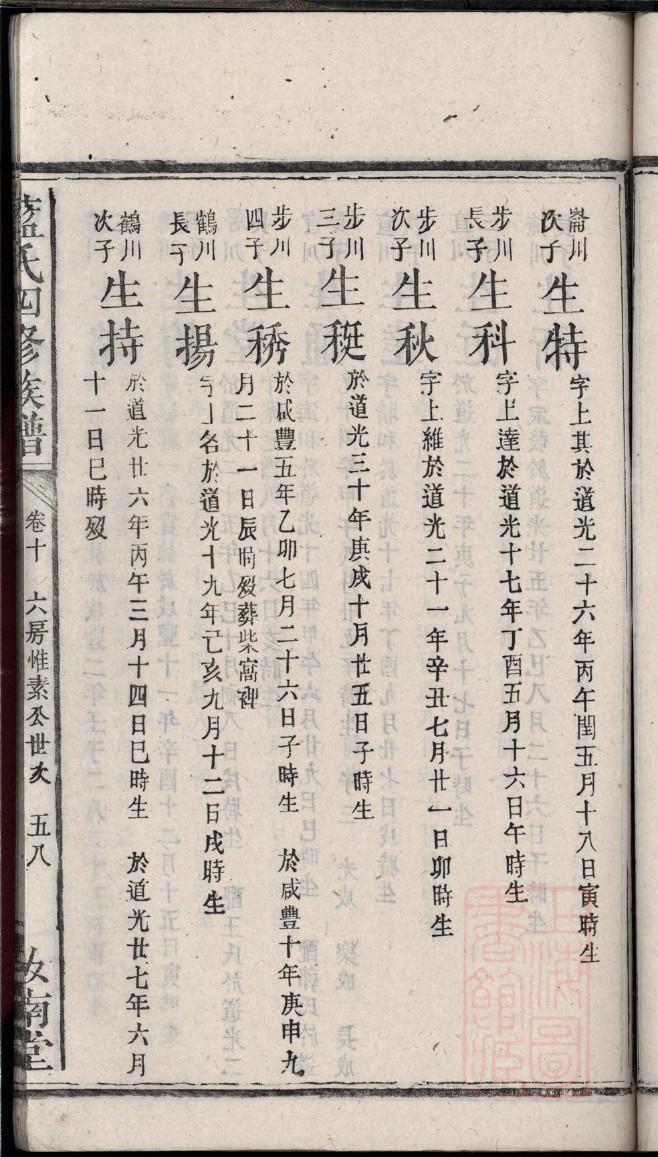 崙川次子
生特
字上其於道光二十六年丙午閏五月十八日寅時生
步川長子
生科
字上達於道光十七年丁酉五月十六日午時生
步川次子
生秋
字上維於道光二十一年辛丑七月廿一日卯時生
步川三子
生秹
於道光三十年庚戌十月廿五日子時生
步川四子
生秀
於咸豐五年乙卯七月二十六日子時生 於咸豐十年庚申九
月二十一日辰時歿葬柴窩裡
鶴川長子
生揚
字上名於道光十九年己亥九月十二日戌時生
鶴川次子
生持
於道光廿六年丙午三月十四日巳時生 於道光廿七年六月
十一日巳時歿
藍氏四修族譜
卷十 六房惟素公世次 五八
汝南堂
上海圖書館藏